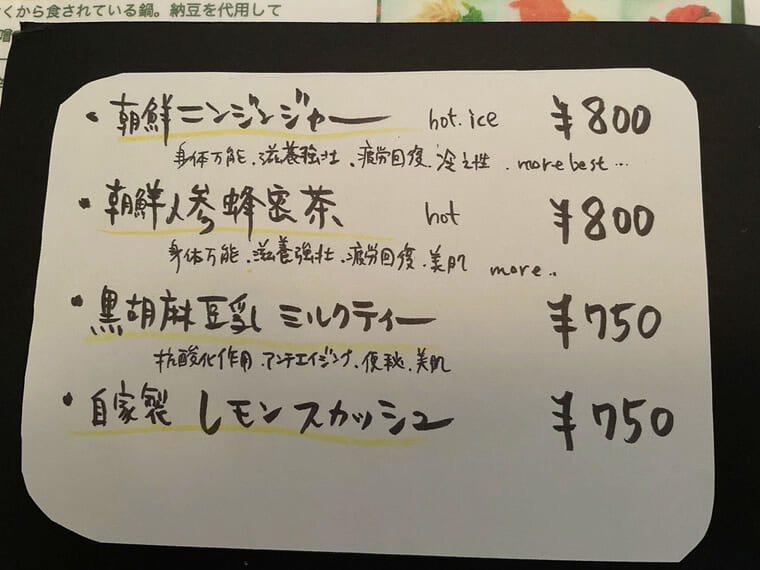 くから食されている鍋。納豆を代用して
・朝鮮ニンジンジャー hot.ice ¥800
身体万能、滋養強壮、疲労回復、冷え性、more best…
・朝鮮人参蜂蜜茶 hot ¥800
身体万能、滋養強壮、疲労回復、美肌 more..
・黒胡麻豆乳 ミルクティー ¥750
抗酸化作用、アンチエイジング、便秘、美肌
・自家製 レモンスカッシュ ¥750